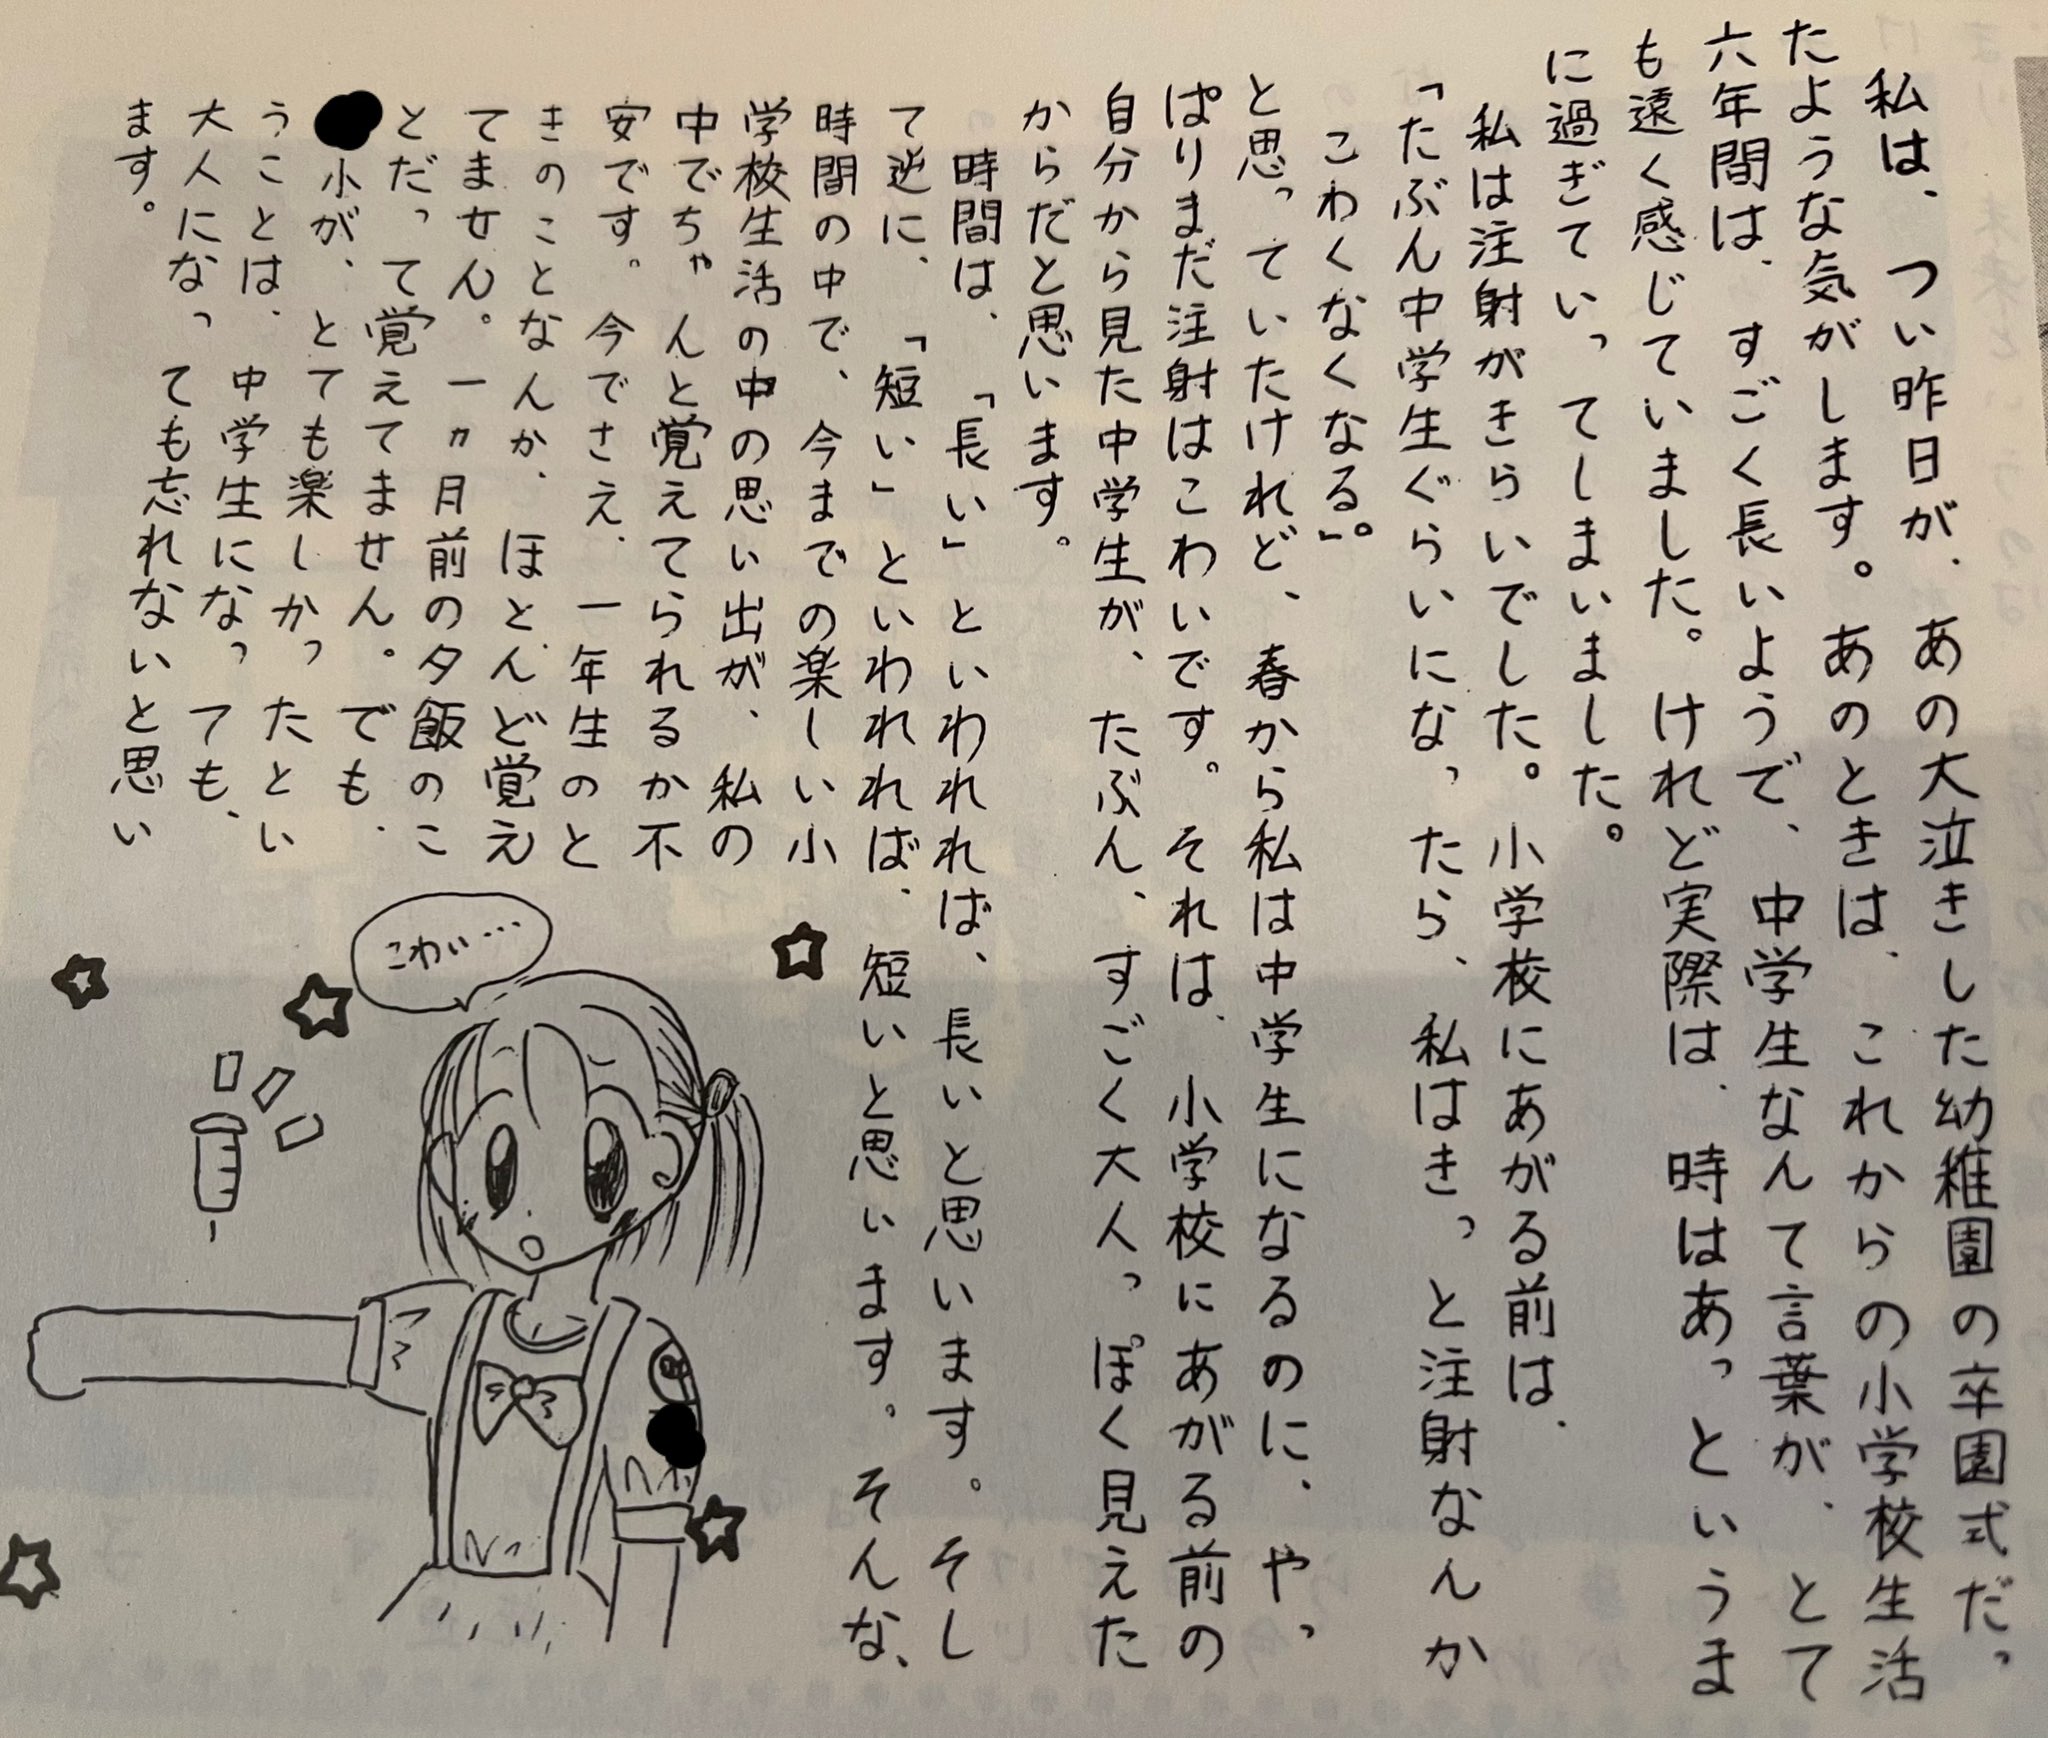 私は、つい昨日が、あの大泣きした幼稚園の卒園式だっ
たような気がします。あのときは、これからの小学校生活
六年間は、すごく長いようで、中学生なんて言葉が、とて
も遠く感じていました。けれど実際は、時はあっというま
に過ぎていってしまいました。
私は注射がきらいでした。小学校にあがる前は、
「たぶん中学生ぐらいになったら、私はきっと注射なんか
こわくなくなる。」
と思っていたけれど、春から私は中学生になるのに、やっ
ぱりまだ注射はこわいです。それは、小学校にあがる前の
自分から見た中学生が、たぶん、すごく大人っぽく見えた
からだと思います。
時間は、「長い」といわれれば、長いと思います。そし
て逆に、「短い」といわれれば、短いと思います。そんな、
時間の中で、今までの楽しい小
学校生活の中の思い出が、私の
中でちゃんと覚えてられるか不
安です。今でさえ、一年生のと
きのことなんか、ほとんど覚え
てません。一ヵ月前の夕飯のこ
とだって覚えてません。でも、
小が、とても楽しかったとい
うことは、中学生になっても、
大人になっても忘れないと思い
ます。
こわい…